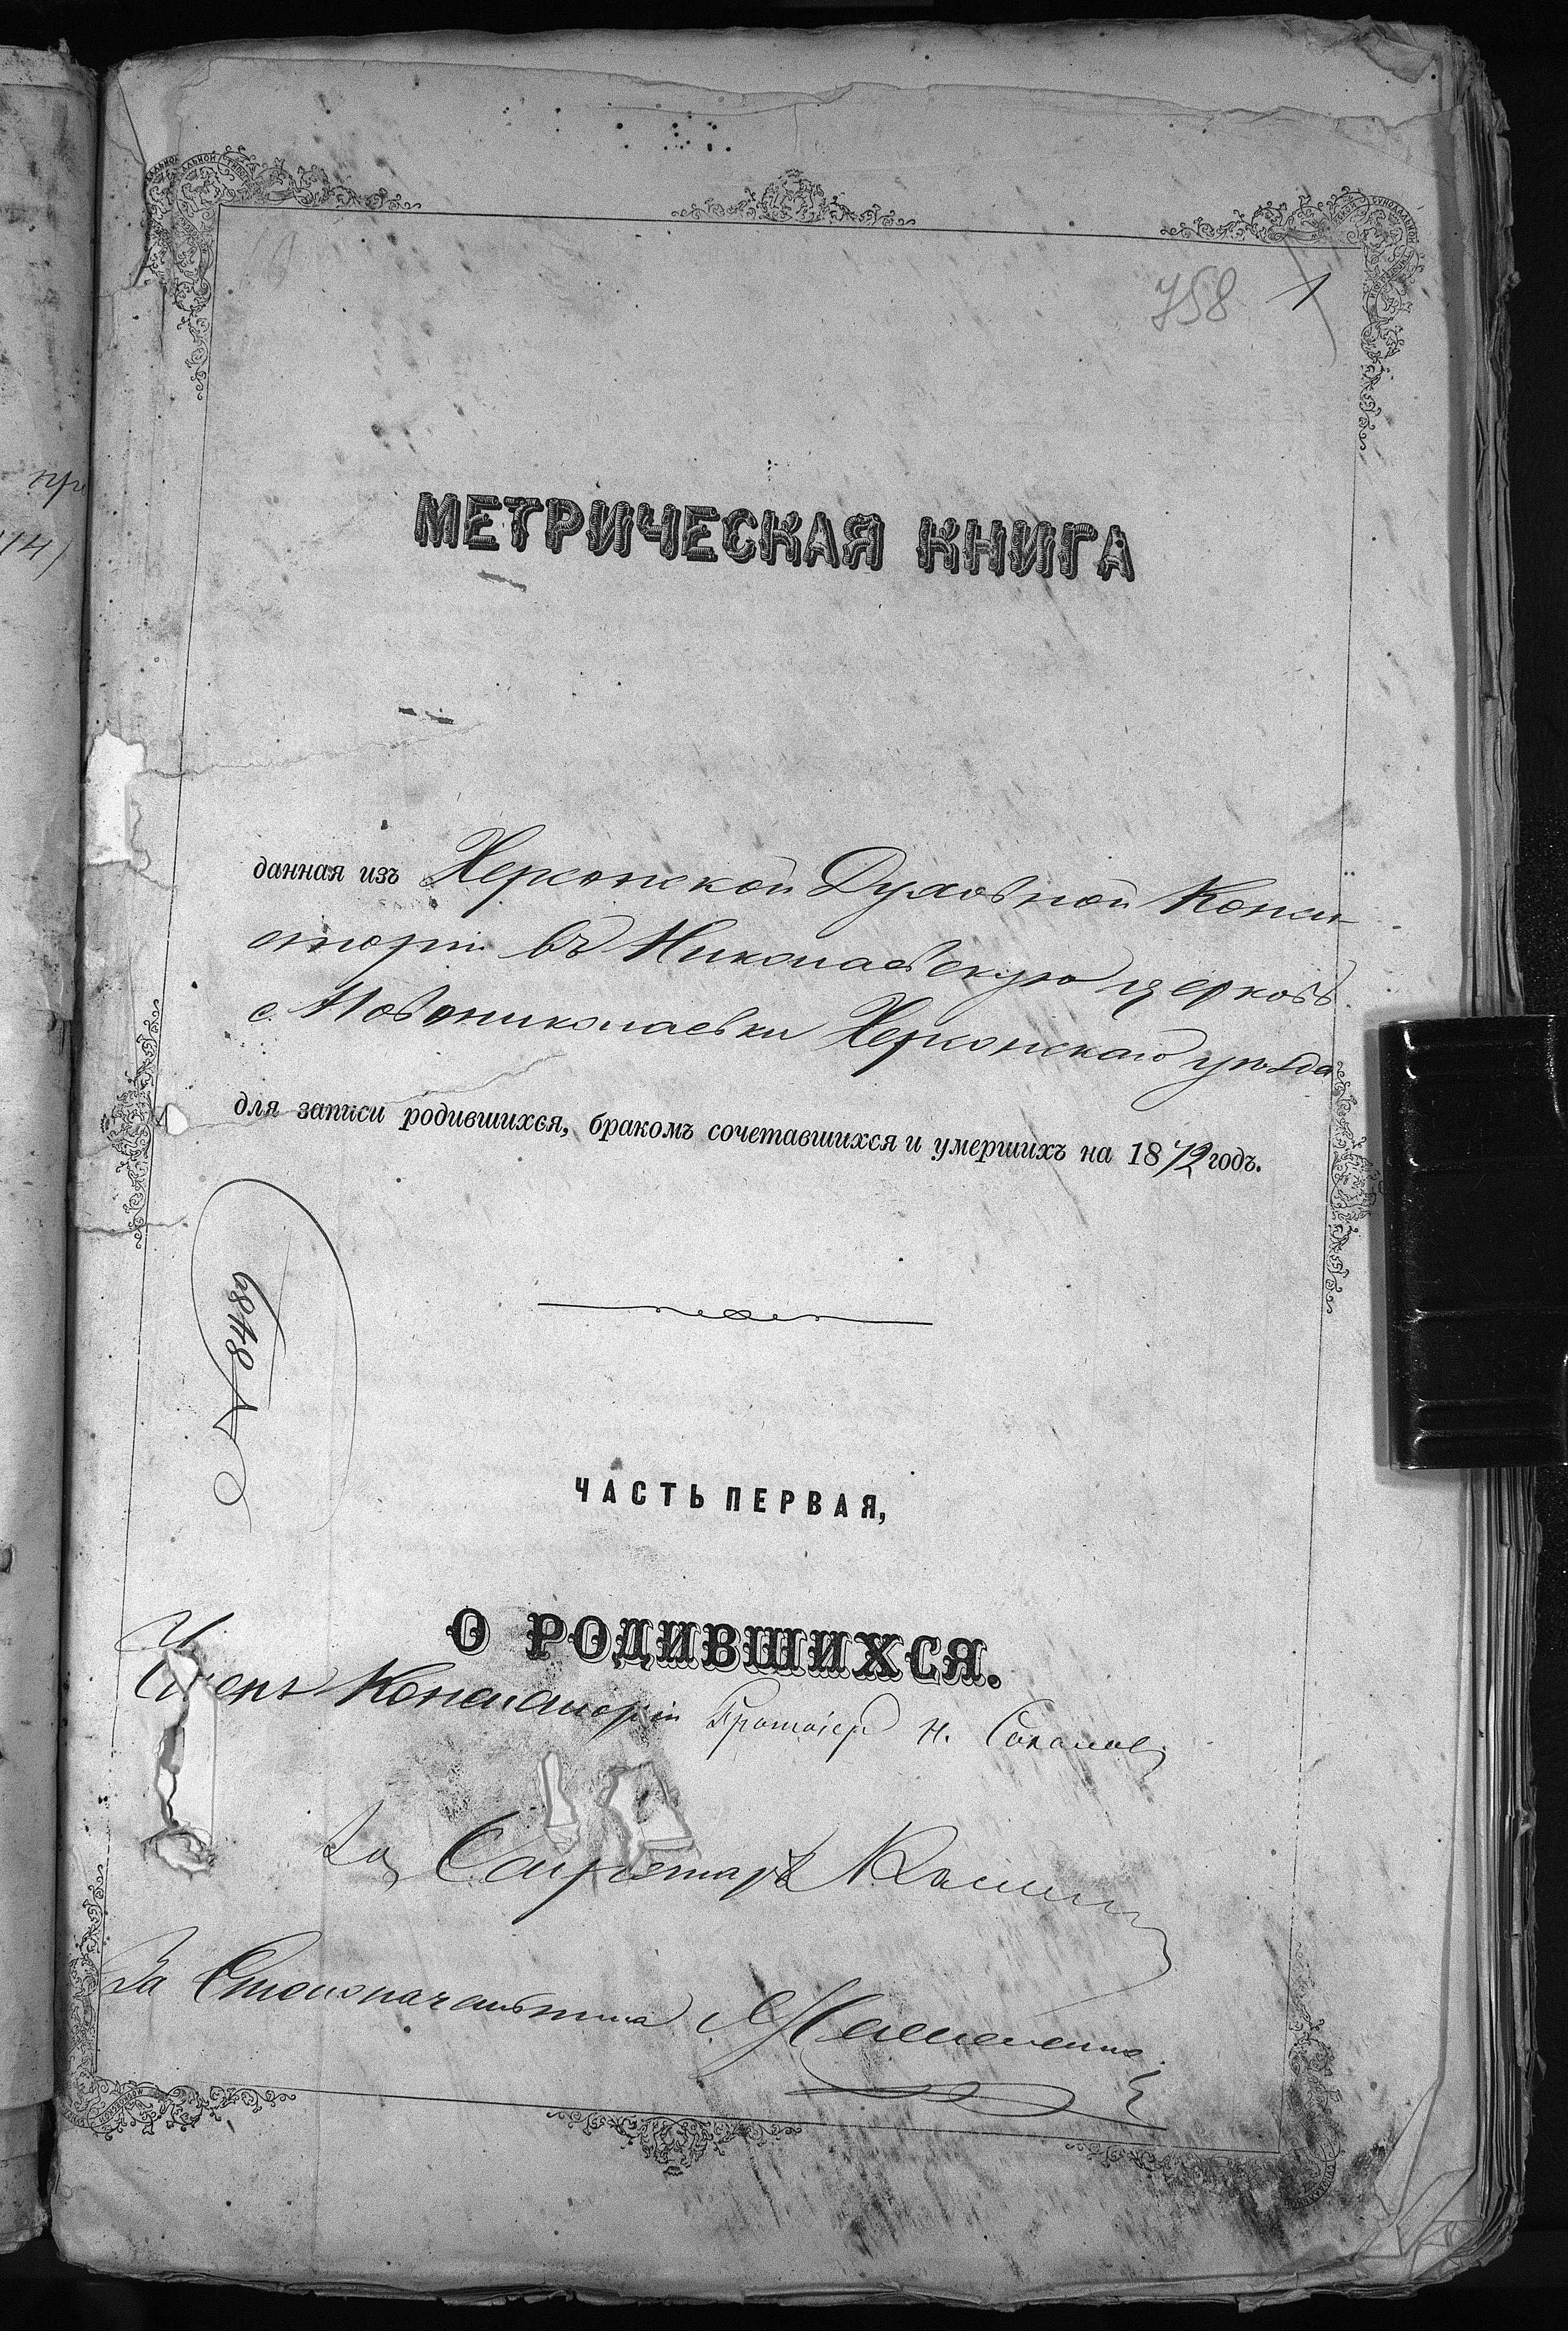 758 1
МЕТРИЧЕСКАЯ КНИГА
данная изъ Херсонской Духовной Конси-
сторіи въ Николаевскую церковь
с. Новониколаевки Херсонскаго уѣзда
для записи родившихся, бракомъ сочетавшихся и умершихъ на 1872 годъ.
6848
ЧАСТЬ ПЕРВАЯ,
О РОДИВШИХСЯ.
Членъ Консисторіи Протоіер Н. Соколов
За Секретаря
За Столоначальника